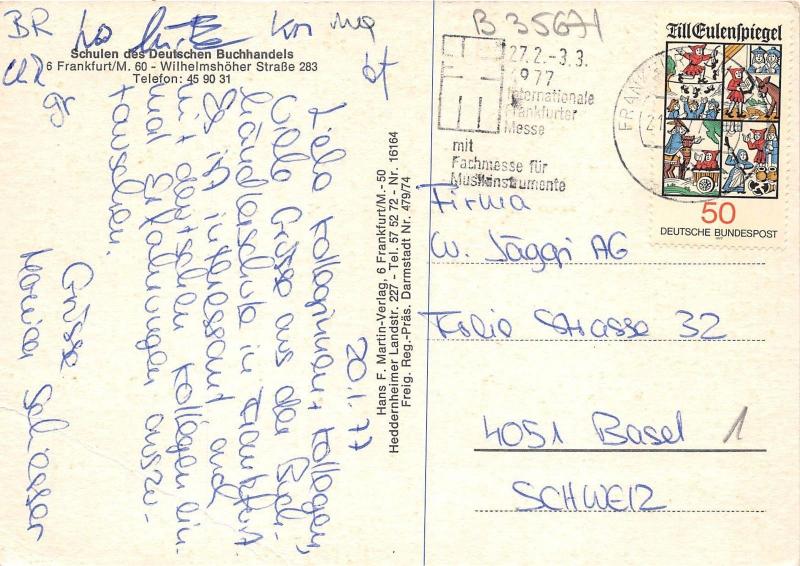 BR
Schulen des Deutschen Buchhandels
6 Frankfurt/M. 60 - Wilhelmshöher Straße 283
Telefon: 45 90 31
20.1.77
Liebe Kolleginnen + Kollegen,
viele Grüsse aus der Buch-
händlerschule in Frankfurt.
Es ist interessant auch
mit deutschen Kollegen ein-
mal Erfahrungen auszu-
tauschen.
Grüsse
Hans F. Martin-Verlag, 6 Frankfurt/M.-50
Heddernheimer Landstr. 227 - Tel. 57 52 72 - Nr. 16164
Freig. Reg.-Präs. Darmstadt Nr. 479/74
B 35671
27.2.-3.3.
1977
Internationale
Frankfurter
Messe
mit
Fachmesse für
Musikinstrumente
FRANK
Till Eulenspiegel
50
DEUTSCHE BUNDESPOST
Firma
W. Jäggi AG
Freie Strasse 32
4051 Basel 1
SCHWEIZ